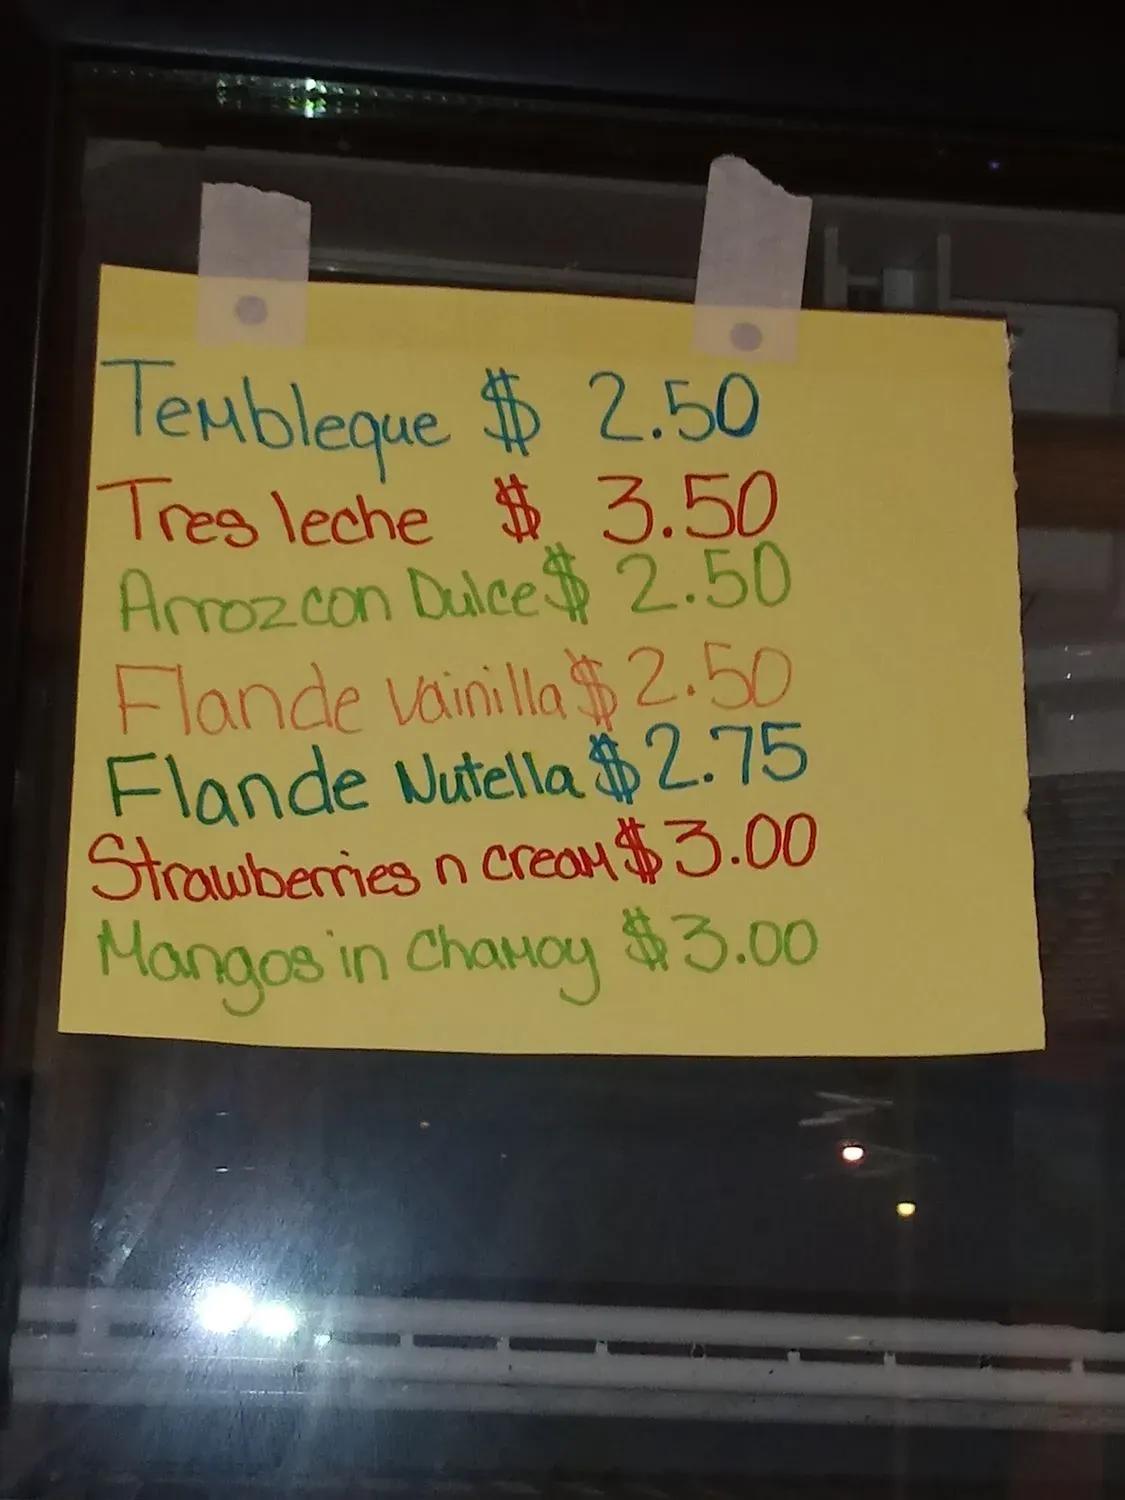 Tembleque $ 2.50
Tres leche $ 3.50
Arroz con Dulce $ 2.50
Flan de Vainilla $ 2.50
Flan de Nutella $ 2.75
Strawberries n cream $ 3.00
Mangos in Chamoy $ 3.00